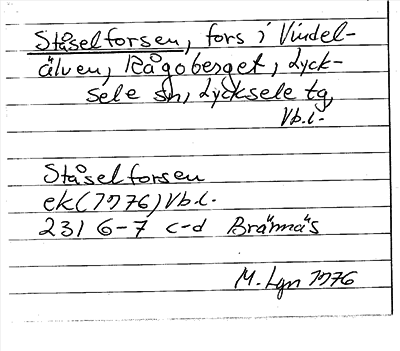 Ståselforsen, fors i Vindel-
älven, Rågoberget, Lyck-
sele sn, Lycksele tg,
Vb.l.
Ståselforsen
ek (1976) Vb.l.
231 6-7 c-d Brännäs
M. Lgn 1976